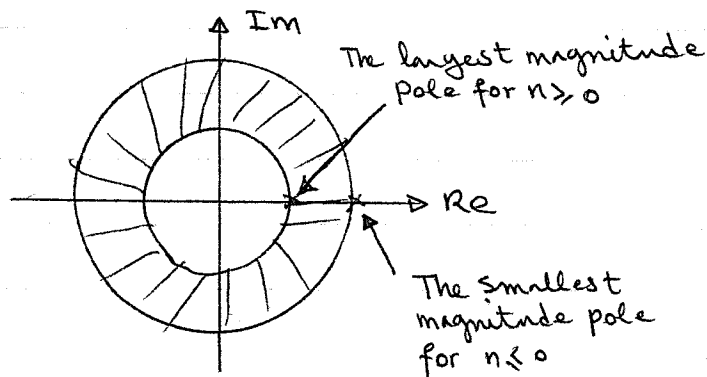 Im
The largest magnitude
Pole for n ≥ 0
Re
The smallest
magnitude pole
for n ≤ 0